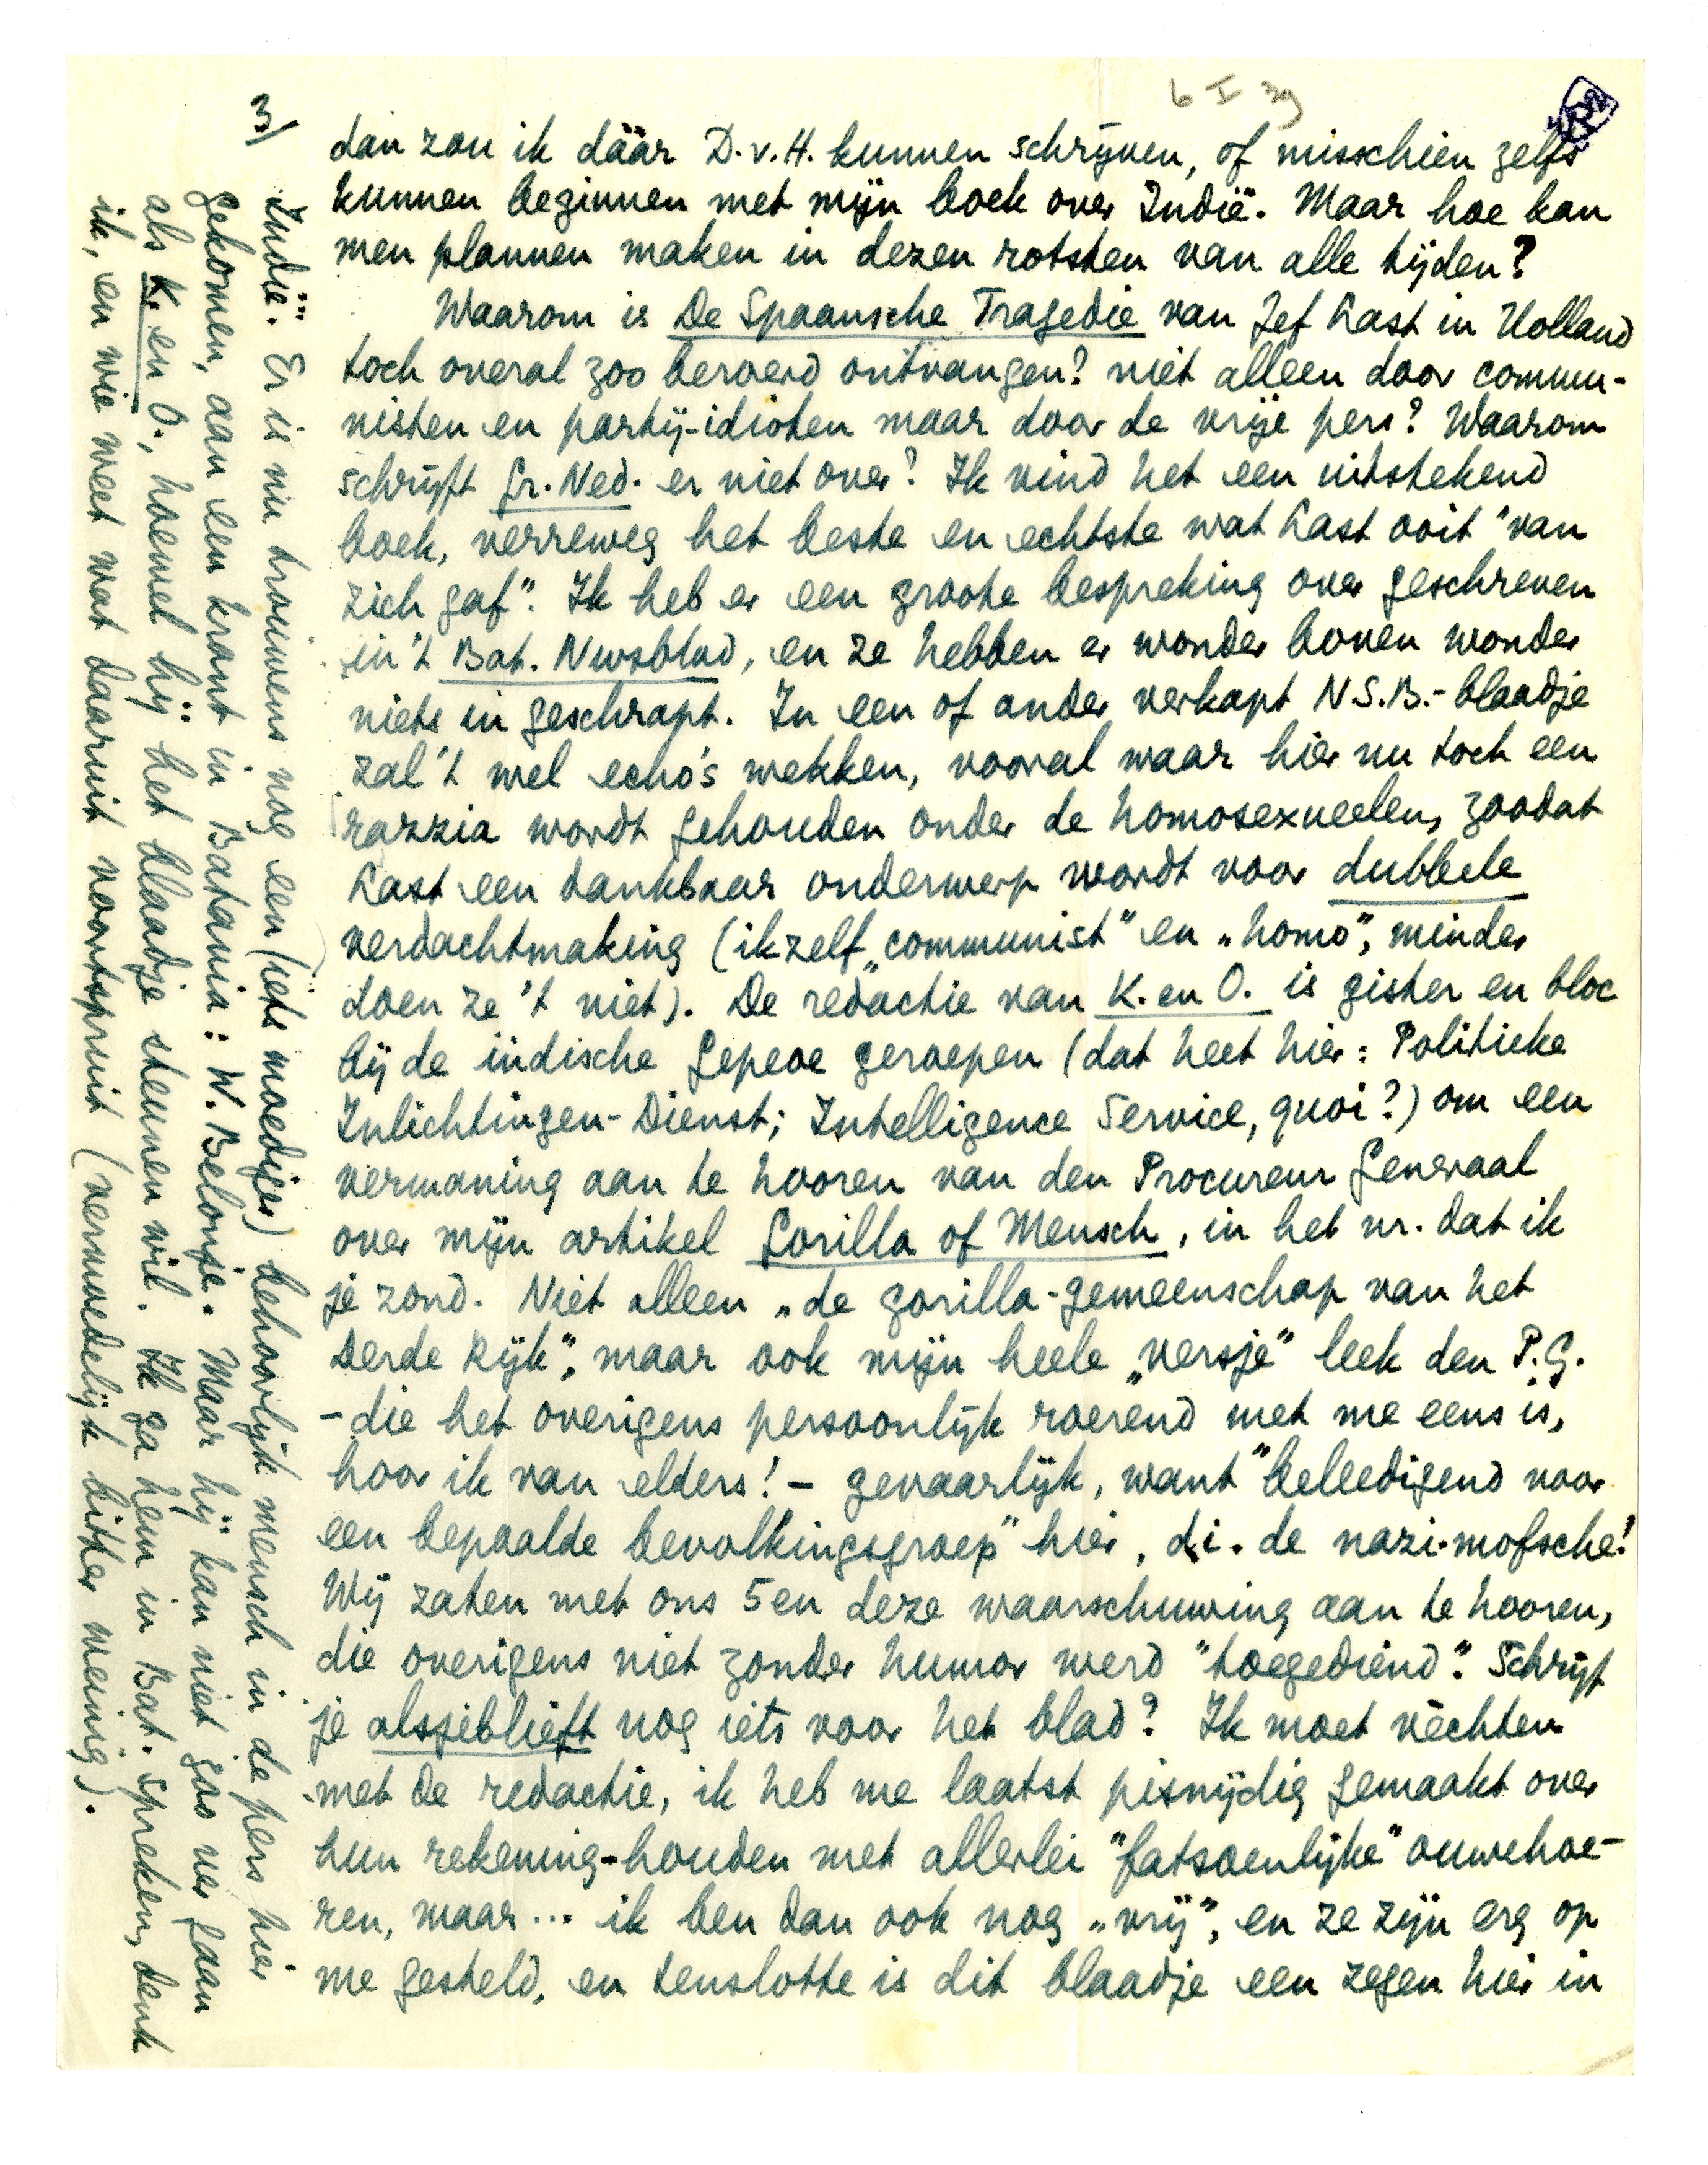 6 I 39
3/
dan zou ik dáár D.v.H. kunnen schrijven, of misschien zelfs
kunnen beginnen met mijn boek over Indië. Maar hoe kan
men plannen maken in dezen rotsten van alle tijden?
Waarom is De Spaansche Tragedie van Jef Last in Holland
toch overal zoo beroerd ontvangen? niet alleen door commu-
nisten en partij-idioten maar door de vrije pers? Waarom
schrijft Gr. Ned. er niet over? Ik vind het een uitstekend
boek, verreweg het beste en echtste wat Last ooit "van
zich gaf". Ik heb er een groote bespreking over geschreven
in 't Bat. Nwsblad, en ze hebben er wonder boven wonder
niets in geschrapt. In een of ander verkapt N.S.B.-blaadje
zal 't wel echo's wekken, vooral waar hier nu toch een
razzia wordt gehouden onder de homosexueelen, zoodat
Last een dankbaar onderwerp wordt voor dubbele
verdachtmaking (ikzelf „communist" en „homo", minder
doen ze 't niet). De redactie van K. en O. is gister en bloc
bij de indische Gepeoe geroepen (dat heet hier: Politieke
Inlichtingen-Dienst; Intelligence Service, quoi?) om een
vermaning aan te hooren van den Procureur Generaal
over mijn artikel Gorilla of Mensch, in het nr. dat ik
je zond. Niet alleen „de gorilla-gemeenschap van het
Derde Rijk", maar ook mijn heele „versje" leek den P.G.
– die het overigens persoonlijk roerend met me eens is,
hoor ik van elders! – gevaarlijk, want "beleedigend voor
een bepaalde bevolkingsgroep" hier, d.i. de nazi-mofsche!
Wij zaten met ons 5en deze waarschuwing aan te hooren,
die overigens niet zonder humor werd "toegediend". Schrijf
je alsjeblieft nog iets voor het blad? Ik moet vèchten
met de redactie, ik heb me laatst pisnijdig gemaakt over
hun rekening-houden met allerlei "fatsoenlijke" ouwehoe-
ren, maar... ik ben dan ook nog „vrij", en ze zijn erg op
me gesteld, en tenslotte is dit blaadje een zegen hier in
Indië. Er is nu trouwens nog een (iets moediger) behoorlijk mensch in de pers hier
gekomen, aan een krant in Batavia: W. Belonje. Maar hij kan niet zoo ver gaan
als K. en O., hoewel hij het blaadje steunen wil. Ik ga hem in Bat. spreken, denk
ik, en wie weet wat daaruit voortspruit (vermoedelijk bitter weinig).